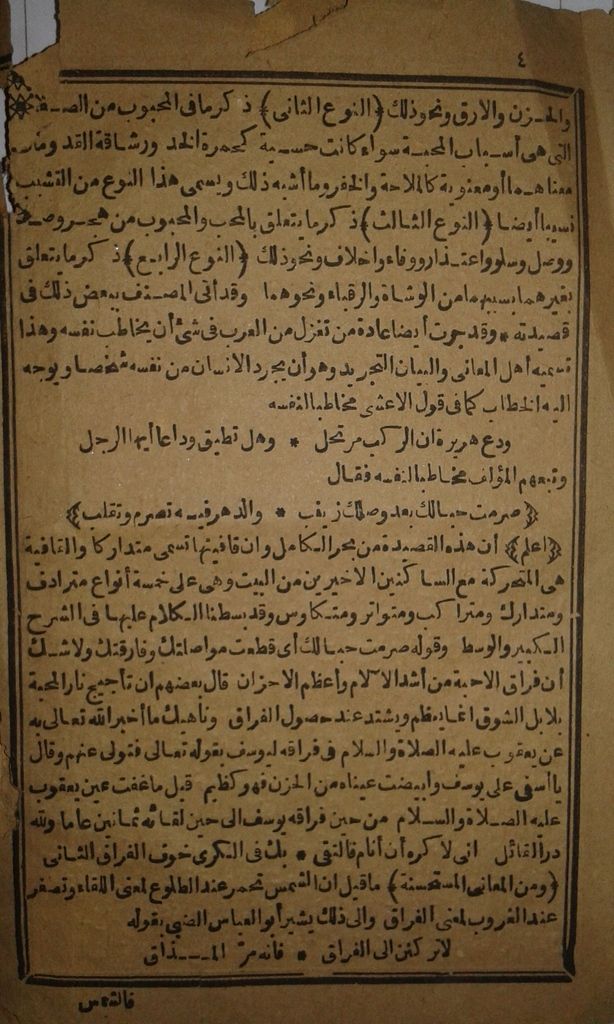 ٤
والحزن والارق ونحو ذلك (النوع الثانى) ذكر ما فى المحبوب من الصفة
التى هى أسباب المحبة سواء كانت حسية كحمرة الخد ورشاقة القد وما
معناهما أو معنوية كالملاحة والخفر وما أشبه ذلك ويسمى هذا النوع من التشبيب
نسيبا أيضا (النوع الثالث) ذكر ما يتعلق بالمحب والمحبوب من هجر وصد
ووصل وسلو واعتذار ووفاء واخلاف ونحو ذلك (النوع الرابع) ذكر ما يتعلق
بغيرهما بسببهما من الوشاة والرقباء ونحوهما وقد أتى المصنف ببعض ذلك فى
قصيدته * وقد جرت أيضا عادة من تغزل من العرب فى شئ أن يخاطب نفسه وهذا
تسميه أهل المعانى والبيان التجريد وهو أن يجرد الانسان من نفسه شخصا ويوجه
اليه الخطاب كما فى قول الاعشى مخاطبا لنفسه
ودع هريرة ان الركب مرتحل * وهل تطيق وداعا أيها الرجل
وتبعهم المؤلف مخاطبا لنفسه فقال
(صرمت حبالك بعد وصلك زينب * والدهر فيه تصرم وتقلب)
(اعلم) أن هذه القصيدة من بحر الكامل وان قافيتها تسمى متداركا والقافية
هى المتحركة مع الساكنين الاخيرين من البيت وهى على خمسة أنواع مترادف
ومتدارك ومتراكب ومتواتر ومتكاوس وقد بسطنا الكلام عليها فى الشرح
الكبير والوسط وقوله صرمت حبالك أى قطعت مواصلتك وفارقتك ولا شك
أن فراق الاحبة من أشد الآلام وأعظم الاحزان قال بعضهم ان تأجيج نار المحبة
بلابل الشوق انما يعظم ويشتد عند حصول الفراق وناهيك ما أخبر الله تعالى به
عن يعقوب عليه الصلاة والسلام فى فراقه ليوسف بقوله تعالى فتولى عنهم وقال
يا أسفى على يوسف وابيضت عيناه من الحزن فهو كظيم قيل ما غفت عين يعقوب
عليه الصلاة والسلام من حين فراقه يوسف الى حين لقائه ثمانين عاما ولله
در القائل انى لاكره أن أنام فالتقى * بك فى الكرى خوف الفراق الثانى
(ومن المعانى المستحسنة) ما قيل ان الشمس تحمر عند الطلوع لمعنى اللقاء وتصفر
عند الغروب لمعنى الفراق والى ذلك يشير أبو العباس الضبى بقوله
لا تركنن الى الفراق * فانه مر المذاق
فالشمس